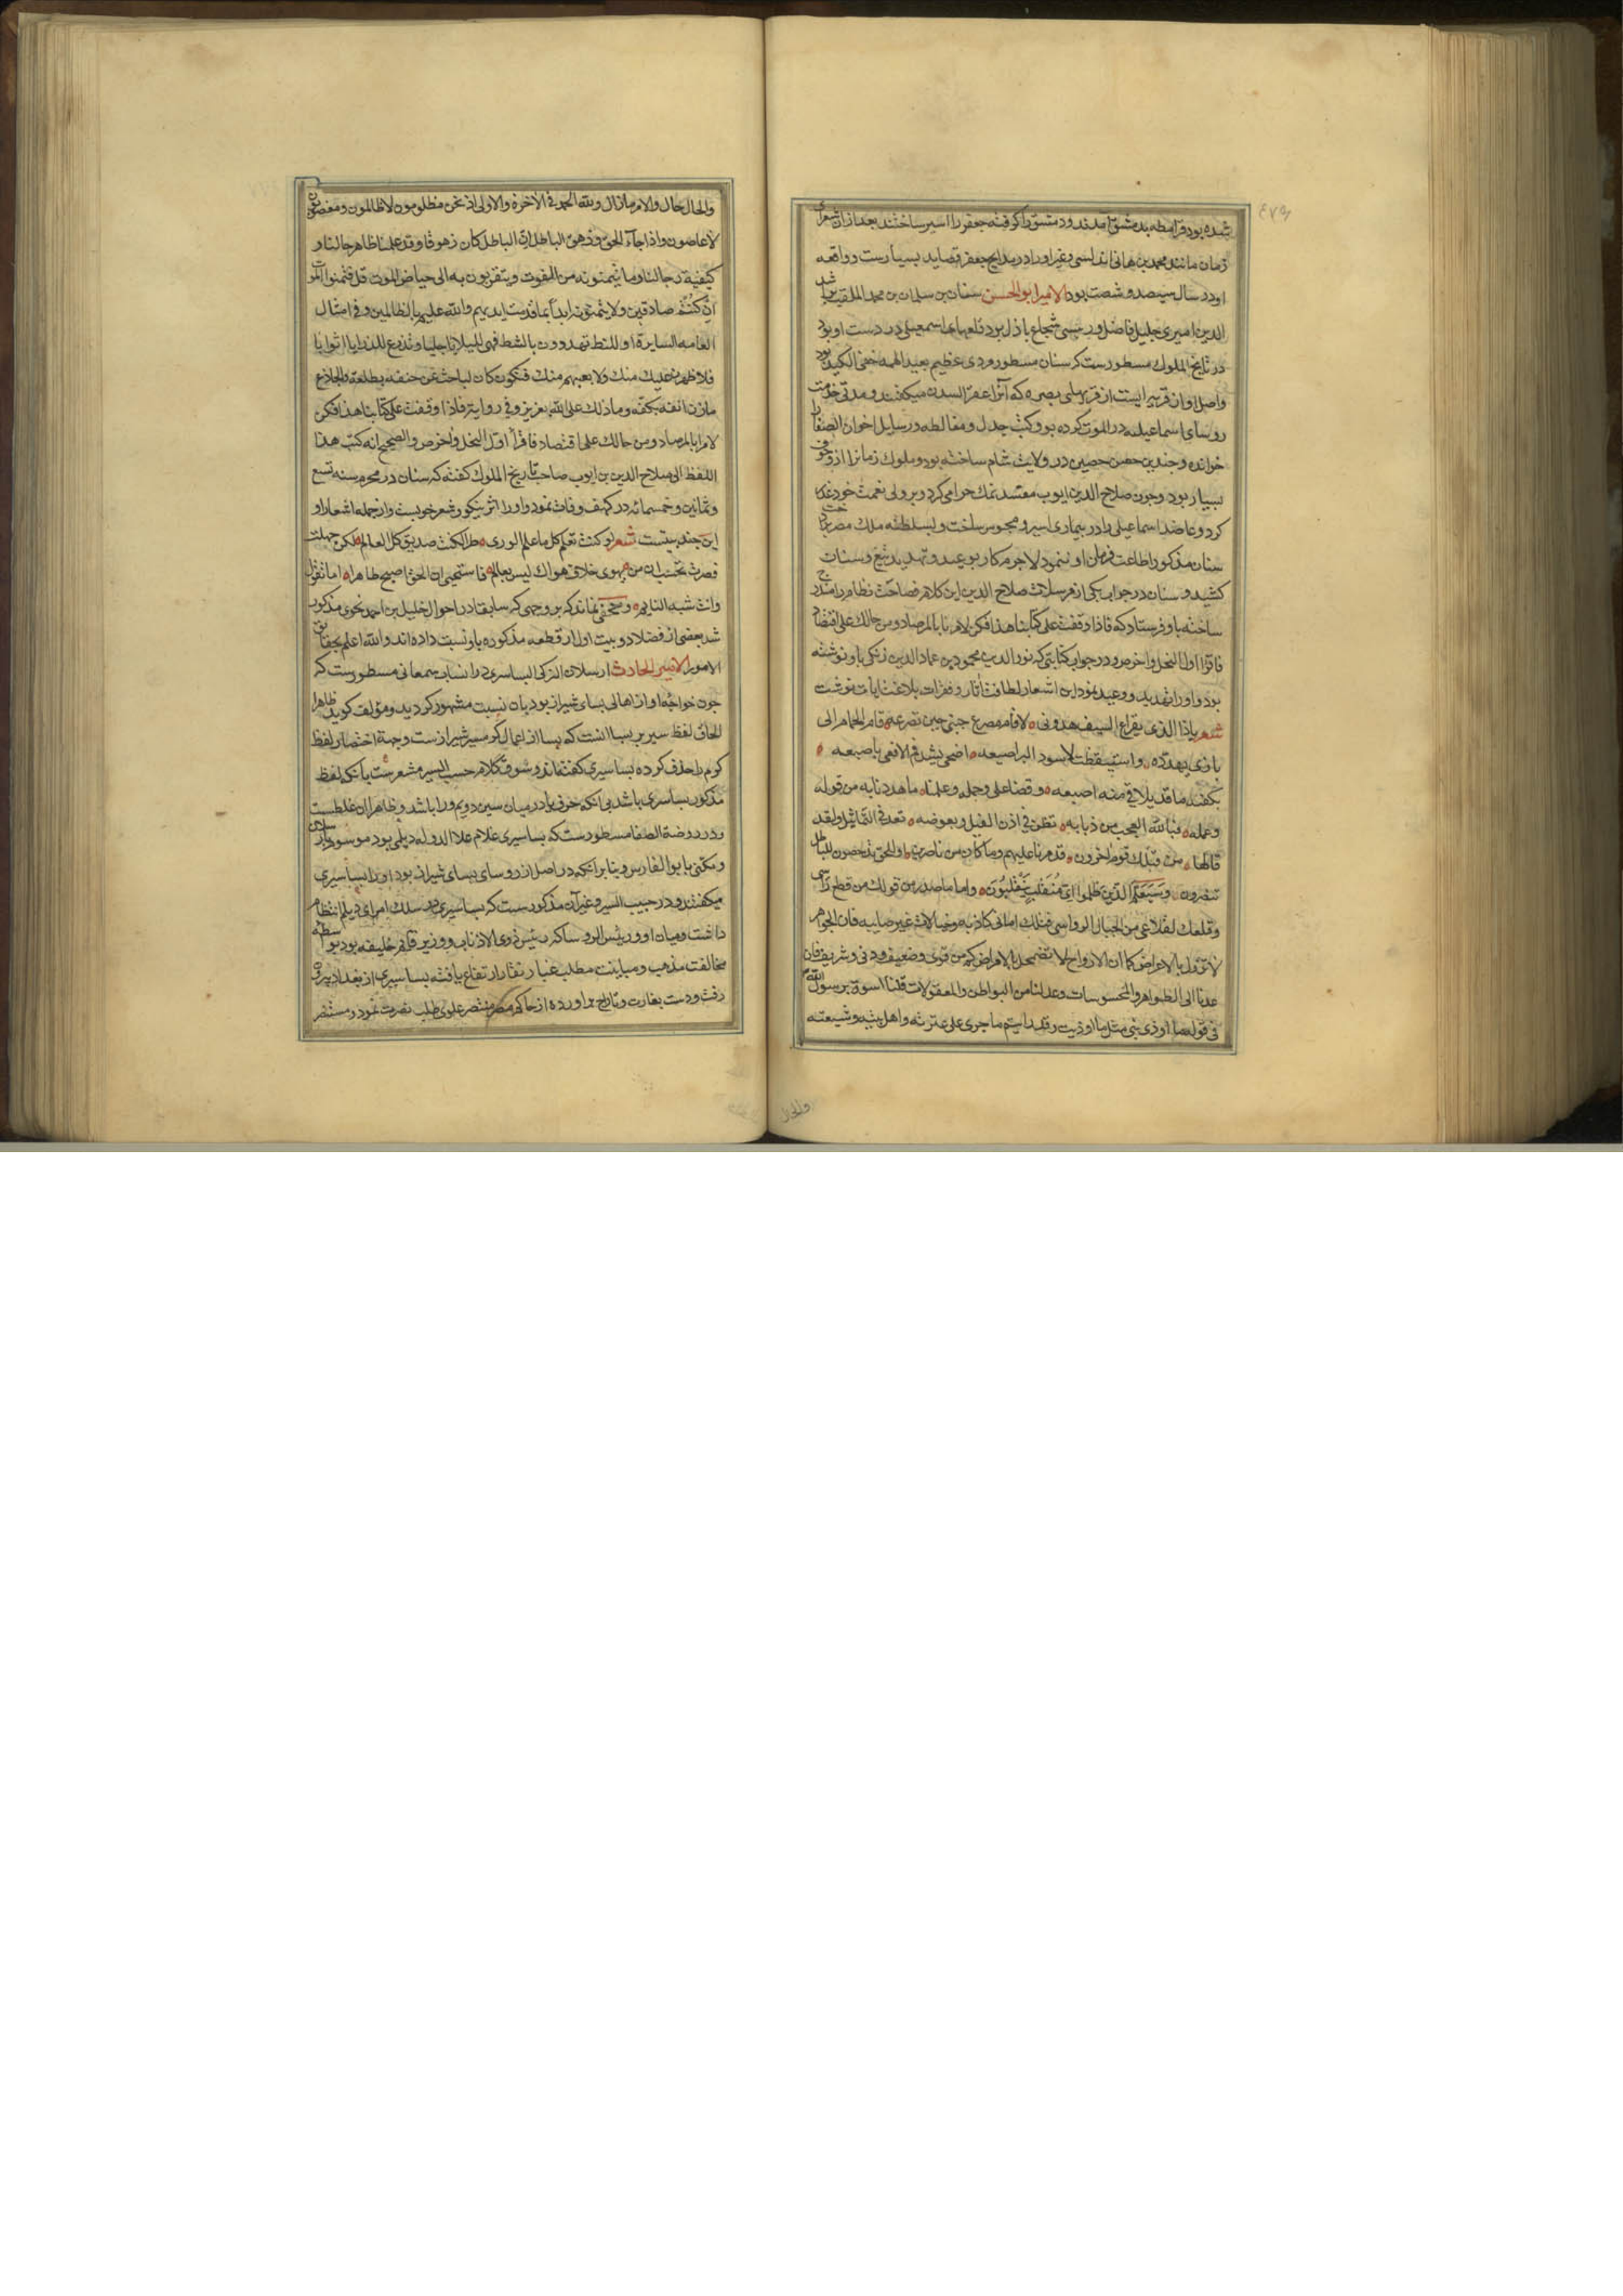 ٤٣٩
شده بود قرامطه بدمشق آمدند و دمشق را گرفته جعفر را اسیر ساختند بعد ازان شعرای
زمان مانند محمد بن هانی اندلسی و غیر او را در مدایح جعفر قصاید بسیارست و واقعه
او در سال سیصد و شصت بود الامیر ابو الحسن سنان بن سلمان بن محمد الملقب براشد
الدین امیری جلیل فاضل و رئیسی شجاع باذل بود قلعهای اسمعیلی در دست او بود
در تاریخ الملوک مسطورست که سنان مسطور مردی عظیم بعید الهمه خفی الکید بود
واصل او از قریه ایست از قریهای بصره که آنرا عقر السدن میگفتند و مدتی خدمت
روسای اسماعیلیه در الموت کرده بود و کتب جدل و مغالطه و رسایل اخوان الصفا را
خوانده و چندین حصن حصین در ولایت شام ساخته بود و ملوک زمانرا ازو خوف
بسیار بود و چون صلاح الدین ایوب معتسد نمک حرامی کرد و بر ولی نعمت خود غدر
کرد و عاضد اسماعیلی را در بیماری اسیر و محبوس ساخت و بسلطنه ملک مصر پرداخت
سنان مذکور اطاعت فرمان او ننمود لاجرم کار بوعید و تهدید تیغ و سنان
کشید و سنان در جواب یکی از مرسلات صلاح الدین این کلام فصاحت نظام را مندرج
ساخته باو فرستاد که فاذا وقفت علی کتابنا هذا فکن لامرنا بالمرصاد ومن حالک علی اقتصاد
فاقرا اول النحل و اخر ص و در جواب کتابتی که نور الدین محمود بن عماد الدین زنکی باو نوشته
بود و او را تهدید و وعید نموده این اشعار لطافت آثار و فقرات بلاغت ایات نوشت
شعر یاذا الذی بقراع السیف هددنی لا قام مصرع جنبی حین تصرعه قام الحمام الی
بازی یهدده واستیقظت لاسود البر اصبعه اضحی یشد فم الافعی باصبعه
یکفیه ما قد یلاقی منه اصبعه وقفنا علی وجمله وعلمنا ما هددنا به من قوله
وعمله فیا لله العجب من ذبابه تطن فی اذن الفیل وبعوضه تعد فی التماثیل ولقد
قالها من قبلک قوم اخرون فدمرنا علیهم وما کان من ناصرین او للحق تدحضون للباطل
تنصرون وسیعلم الذین ظلموا ای منقلب ینقلبون واما ما صدر من قولک من قطع راسی
وقلعک لقلاعی من الجبال الرواسی فتلک امانی کاذبه وخیالات غیر صایبه فان الجواهر
لا تزول بالاعراض کما ان الارواح لا تضمحل بالامراض کم من قوی وضعیف ودنی وشریف فان
عدنا الی الظواهر والمحسوسات وعدلنا من البواطن والمعقولات فلنا اسوة برسول الله
فی قوله ما اوذی نبی مثل ما اوذیت وقد رایتم ما جری علی عترته واهل بیته وشیعته
والحال
والحال حال والامر مازال ولله الحمد فی الآخرة والاولی اذ نحن مظلومون لا ظالمون ومغصوبون
لا غاصبون واذا جاء الحق وزهق الباطل ان الباطل کان زهوقا وقد علمنا ظاهر حالنا و
کیفیة رجالنا وما یتمنونه من الفوت ویتقربون به الی حیاض الموت قل فتمنوا الموت
ان کنتم صادقین ولا یتمنونه ابدا بما قدمت ایدیهم والله علیم بالظالمین وفی امثال
العامه السایرة او للبط تهددون بالشط فهی للبلایا جلبابا وتدرع للرزایا اثوابا
فلا ظهرن علیک منک ولا یعیبهم منک فتکون کالباحث عن حتفه بظلفه والجادع
مارن انفه بکفه وما ذلک علی الله بعزیز وفی روایة فاذا وقفت علی کتابنا هذا فکن
لامرنا بالمرصاد ومن حالک علی اقتصاد فاقرا اول النحل واخر ص والصحیح انه کتب هذا
اللفظ الی صلاح الدین بن ایوب صاحب تاریخ الملوک گفته که سنان در محرم سنه تسع
وثمانین وخمسمائه در کهف وفات نمود و او را اثر نیکو و شعر خوبست و از جمله اشعار او
این چند بیتست شعر لو کنت تعلم کل ما علم الوری طرا لکنت صدیق کل العالم لکن جهلت
فصرت تحسب ان من یهوی خلاف هواک لیس بعالم فاستحیی ان الحق اصبح ظاهرا اما تقول
وانت شبه النایم و مخفی نماند که بر وجهی که سابقا در احوال خلیل بن احمد نحوی مذکور
شد بعضی از فضلا دو بیت اول از قطعه مذکوره باو نسبت داده اند والله اعلم بحقایق
الامور الامیر الحارث ارسلان الترکی البساسری در انساب سمعانی مسطورست که
چون خواجه او از اهالی بسای شیراز بود بان نسبت مشهور گردید و مؤلف گوید ظاهرا
الحاق لفظ سیر بر بسا انست که بسا از اعمال گرمسیر شیرازست و جهة اختصار لفظ
گرم را حذف کرده بساسیری گفته‌اند و سوق کلام حبیب السیر مشعرست بآنکه لفظ
مذکور بساسری باشد بی آنکه حرف یا در میان سین دویم و را باشد و ظاهرا ان غلطست
و در روضة الصفا مسطورست که بساسیری غلام علا الدوله دیلمی بود موسوم بارسلان
و مکنی بابو الفارس و بنا بر آنکه در اصل از روسای بسای شیراز بود او را بساسیری
میگفتند و در حبیب السیر و غیر آن مذکورست که بساسیری در سلک امرای دیلم انتظام
داشت و میان او و رئیس الروسا که رئیس ذوی الاذناب و وزیر قایم خلیفه بود بواسطه
مخالفت مذهب و مباینت مطلب غبار نقار ارتفاع یافته بساسیری از بغداد بیرون
رفت و دست بغارت و تاراج براورده از حاکم مصر مستنصر علوی طلب نصرت نمود و مستنصر